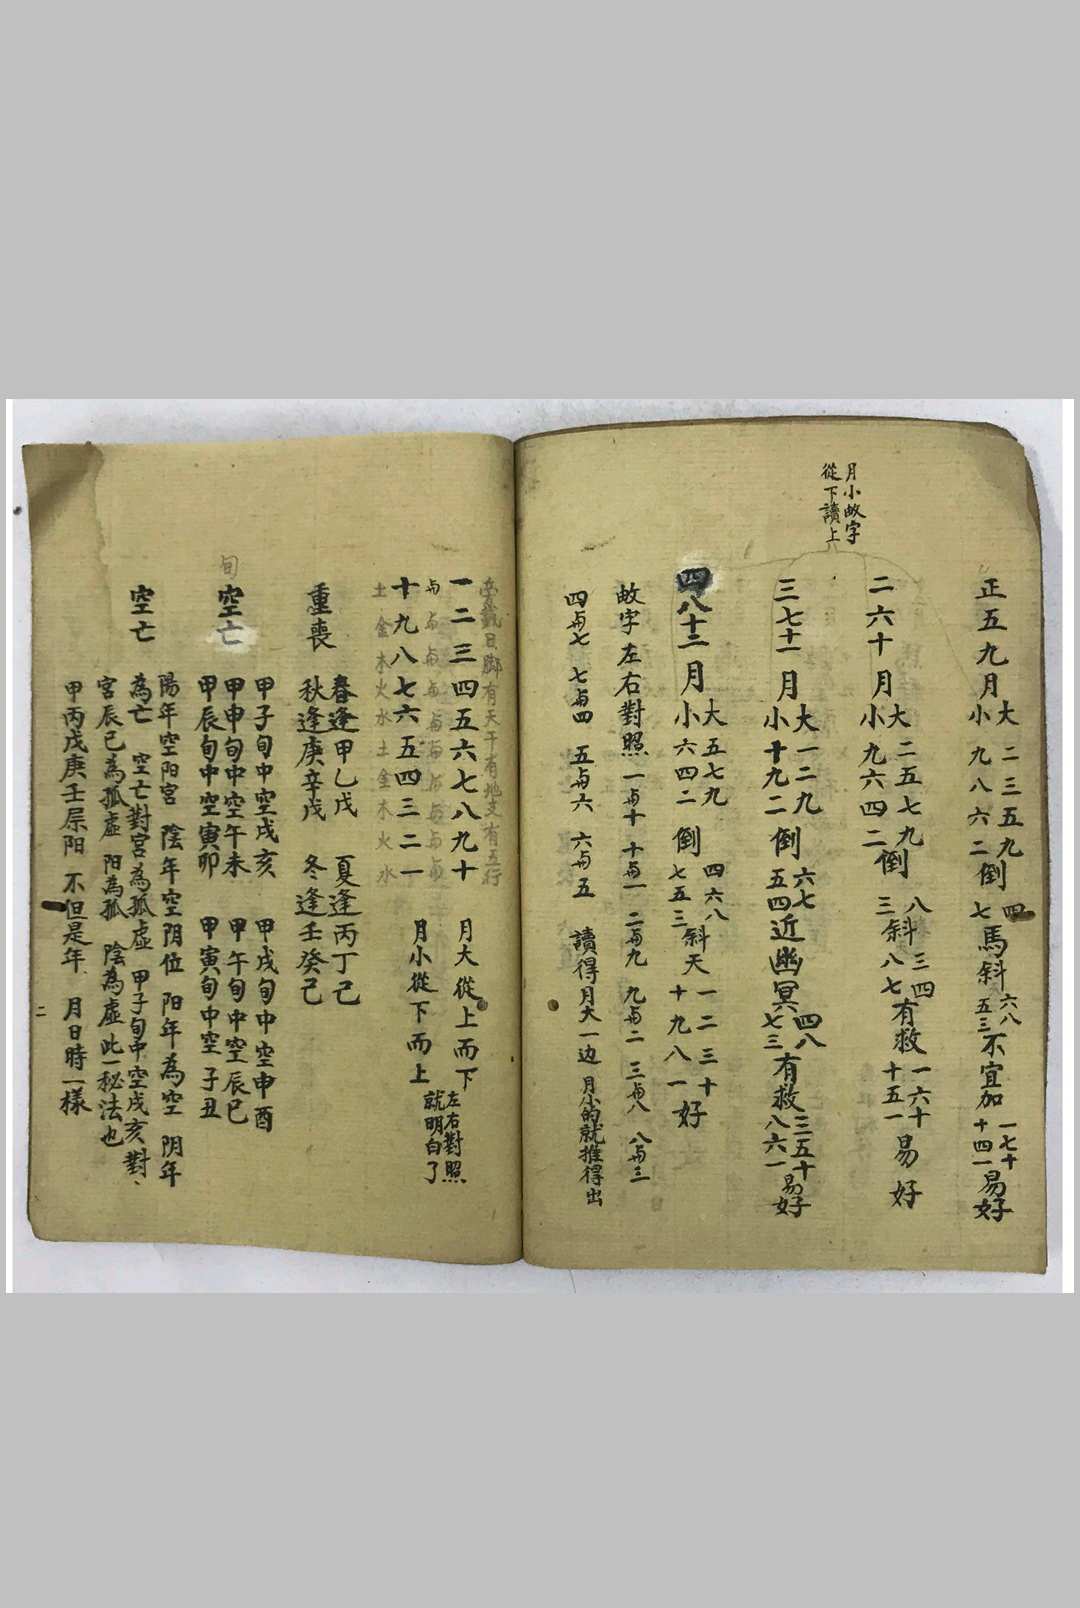 月小啟字
從下讀上
正五九月
大 二三五九
小 九八六二
倒
四
七
馬斜
六八
五三
不宜加
一七十
十四一
易好
二六十月
大 二五七九
小 九六四二
倒
八
三
斜
三四
八七
有救
一六十
十五一
易好
三七十一月
大 一二九
小 十九二
倒
六七
五四
近幽冥
四八
七三
有救
三五十
八六一
易好
四八十二月
大 五七九
小 六四二
倒
四六八
七五三
斜天
一二三十
十九八一
好
啟字左右對照 一与十 十与一 二与九 九与二 三与八 八与三
四与七 七与四 五与六 六与五 讀得月大一边 月小的就推得出
日脚有天干有地支有五行
一二三四五六七八九十 月大從上而下
与与与与与与与与与与
十九八七六五四三二一 月小從下而上
左右對照
就明白了
土金木火水土金木火水
重喪
春逢甲乙戊 夏逢丙丁己
秋逢庚辛戊 冬逢壬癸己
旬
空亡
甲子旬中空戌亥 甲戌旬中空申酉
甲申旬中空午未 甲午旬中空辰巳
甲辰旬中空寅卯 甲寅旬中空子丑
空亡
陽年空阳宮 陰年空阴位 阳年為空 阴年
為亡 空亡對宮為孤虛 甲子旬中空戌亥對
宮辰巳為孤虛 阳為孤 陰為虛此一秘法也
甲丙戊庚壬屬阳 不但是年 月日時一樣
二